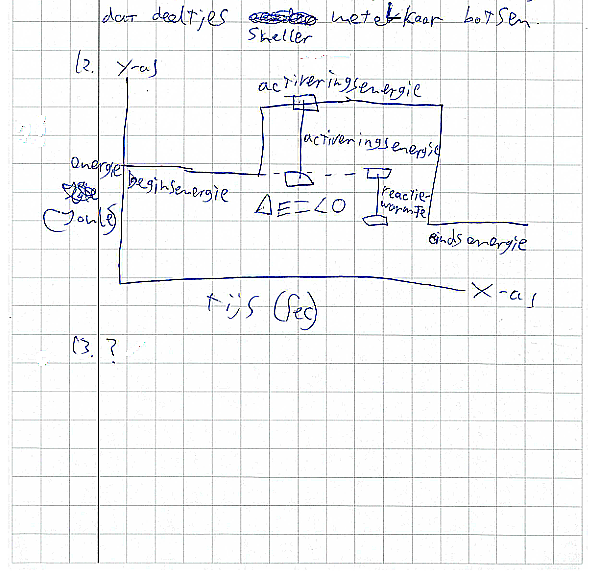 dat deeltjes sneller met elkaar botsen.
12. Y-as
activeringsenergie
activeringsenergie
energie
(Joule)
beginsenergie
ΔE=<0
reactie-
warmte
einds energie
X-as
tijs (sec)
13. ?